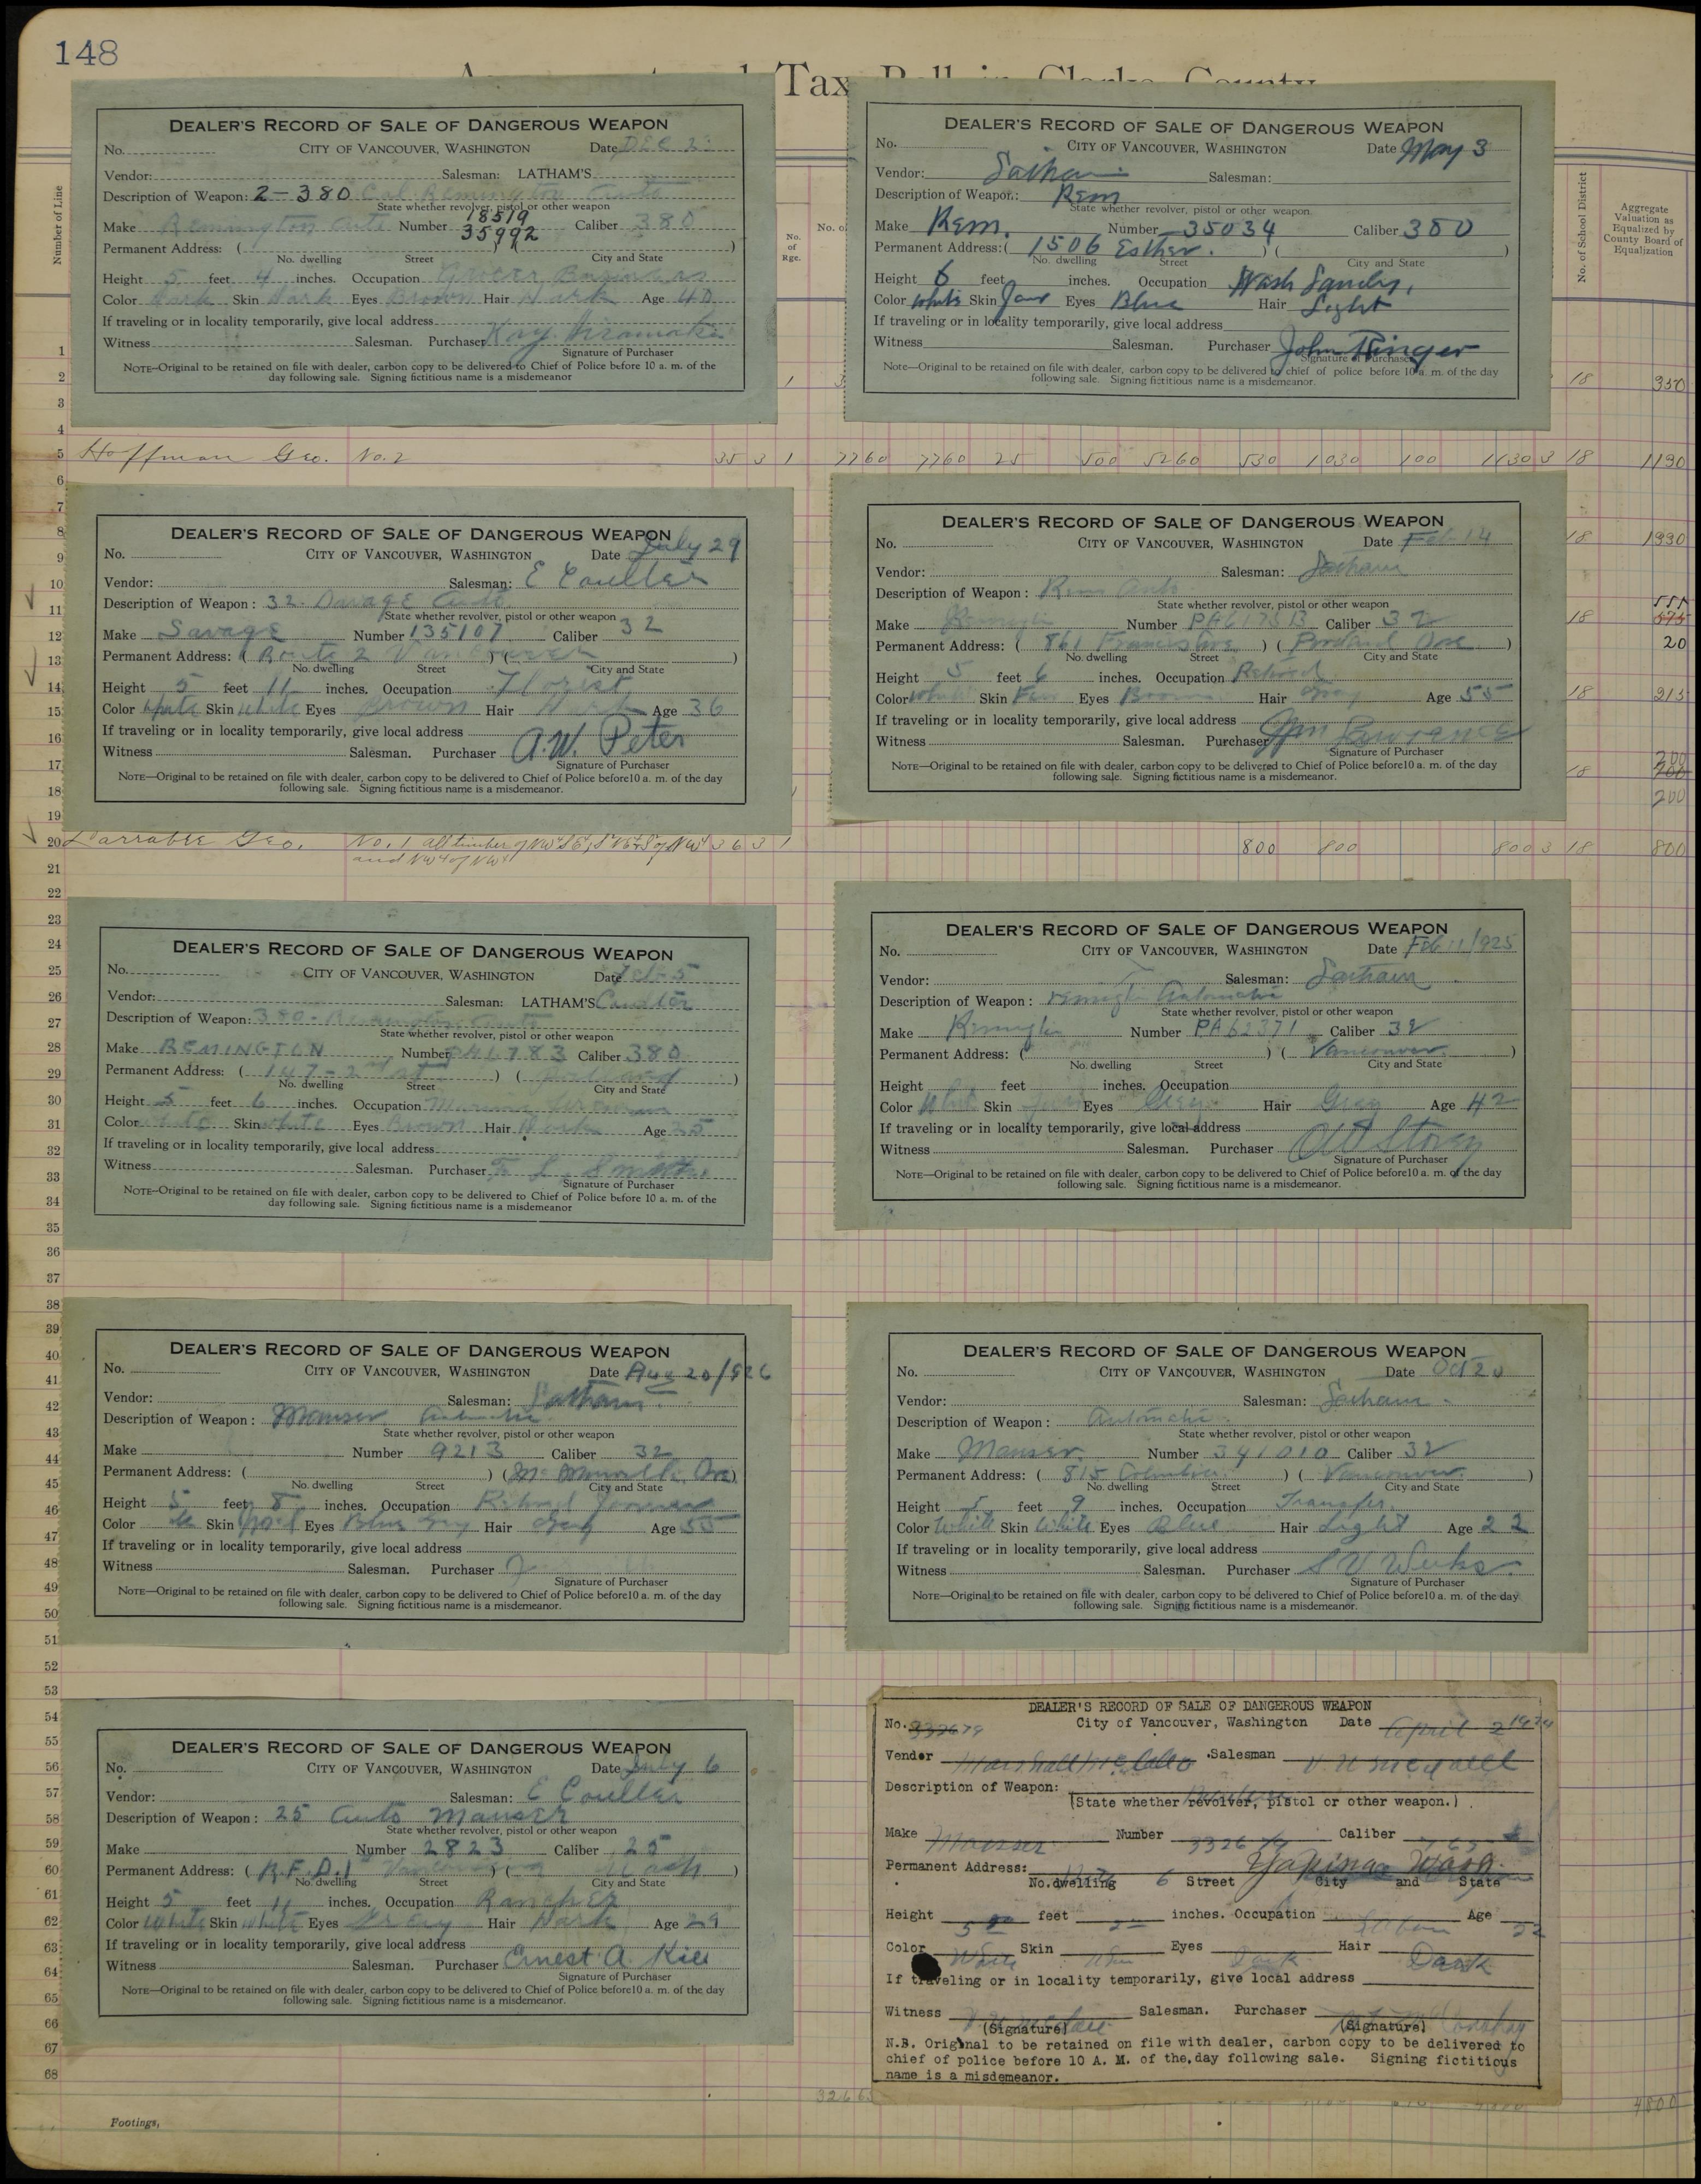 148
Tax Roll in Clarke County
Number of Line
No. of Rge.
No. of School District
Aggregate Valuation as Equalized by County Board of Equalization
DEALER'S RECORD OF SALE OF DANGEROUS WEAPON
No. CITY OF VANCOUVER, WASHINGTON Date DEC 2
Vendor: Salesman: LATHAM'S
Description of Weapon: 2-380 Cal. Remington Auto
State whether revolver, pistol or other weapon
18519
Make Remington Auto Number 35992 Caliber 380
Permanent Address: ( )
No. dwelling Street City and State
Height 5 feet 4 inches. Occupation Business
Color Dark Skin Dark Eyes Brown Hair Dark Age 40
If traveling or in locality temporarily, give local address
Witness Salesman. Purchaser Kay
Signature of Purchaser
NOTE—Original to be retained on file with dealer, carbon copy to be delivered to Chief of Police before 10 a. m. of the
day following sale. Signing fictitious name is a misdemeanor
DEALER'S RECORD OF SALE OF DANGEROUS WEAPON
No. CITY OF VANCOUVER, WASHINGTON Date May 3
Vendor: Latham Salesman:
Description of Weapon: Rem
State whether revolver, pistol or other weapon.
Make Rem. Number 35034 Caliber 380
Permanent Address: ( 1506 Esther. ) ( )
No. dwelling Street City and State
Height 6 feet inches. Occupation Wash Laundry.
Color White Skin Fair Eyes Blue Hair Light
If traveling or in locality temporarily, give local address
Witness Salesman. Purchaser John Ringer
Signature of Purchaser
Note—Original to be retained on file with dealer, carbon copy to be delivered to chief of police before 10 a. m. of the day
following sale. Signing fictitious name is a misdemeanor.
18 350
5 Hoffman Geo. No. 2 35 3 1 7760 7760 25 500 5260 530 1030 100 1130 3 18 1190
DEALER'S RECORD OF SALE OF DANGEROUS WEAPON
No. CITY OF VANCOUVER, WASHINGTON Date July 29
Vendor: Salesman: E Coulter
Description of Weapon: 32. Savage Auto.
State whether revolver, pistol or other weapon
Make Savage Number 135107 Caliber 32
Permanent Address: ( Route 2 Vancouver ) ( )
No. dwelling Street City and State
Height 5 feet 11 inches. Occupation Florist
Color White Skin White Eyes Brown Hair Dark Age 36
If traveling or in locality temporarily, give local address
Witness Salesman. Purchaser A.W. Peter
Signature of Purchaser
NOTE—Original to be retained on file with dealer, carbon copy to be delivered to Chief of Police before10 a. m. of the day
following sale. Signing fictitious name is a misdemeanor.
DEALER'S RECORD OF SALE OF DANGEROUS WEAPON
No. CITY OF VANCOUVER, WASHINGTON Date Feb 14
Vendor: Salesman: Latham
Description of Weapon: Rem Auto
State whether revolver, pistol or other weapon
Make Remington Number Caliber 32
Permanent Address: ( 861 Francis Ave ) ( Portland Ore )
No. dwelling Street City and State
Height 5 feet 6 inches. Occupation Retired
Color White Skin Fair Eyes Brown Hair Gray Age 55
If traveling or in locality temporarily, give local address
Witness Salesman. Purchaser Wm Lawrence
Signature of Purchaser
NOTE—Original to be retained on file with dealer, carbon copy to be delivered to Chief of Police before10 a. m. of the day
following sale. Signing fictitious name is a misdemeanor.
18 1990
18 575
20
18 215
18 200
200
20 Larrabee Geo. No. 1 all timber 36 3 1 800 800 800 3 18 800
DEALER'S RECORD OF SALE OF DANGEROUS WEAPON
No. CITY OF VANCOUVER, WASHINGTON Date Feb-5
Vendor: Salesman: LATHAM'S Coulter
Description of Weapon: 380 - Remington Auto
State whether revolver, pistol or other weapon
Make REMINGTON Number Caliber 380
Permanent Address: ( 147-2nd st ) ( Portland )
No. dwelling Street City and State
Height 5 feet 6 inches. Occupation
Color White Skin White Eyes Brown Hair Dark Age 25
If traveling or in locality temporarily, give local address
Witness Salesman. Purchaser
Signature of Purchaser
NOTE—Original to be retained on file with dealer, carbon copy to be delivered to Chief of Police before 10 a. m. of the
day following sale. Signing fictitious name is a misdemeanor
DEALER'S RECORD OF SALE OF DANGEROUS WEAPON
No. CITY OF VANCOUVER, WASHINGTON Date Feb 11/925
Vendor: Salesman: Latham
Description of Weapon: Automatic
State whether revolver, pistol or other weapon
Make Remington Number PA62371 Caliber 32
Permanent Address: ( ) ( Vancouver )
No. dwelling Street City and State
Height feet inches. Occupation
Color White Skin Eyes Grey Hair Gray Age 42
If traveling or in locality temporarily, give local address
Witness Salesman. Purchaser Storey
Signature of Purchaser
NOTE—Original to be retained on file with dealer, carbon copy to be delivered to Chief of Police before10 a. m. of the day
following sale. Signing fictitious name is a misdemeanor.
DEALER'S RECORD OF SALE OF DANGEROUS WEAPON
No. CITY OF VANCOUVER, WASHINGTON Date Aug 20/926
Vendor: Salesman: Latham
Description of Weapon: Mauser Automatic
State whether revolver, pistol or other weapon
Make Number 9213 Caliber 32
Permanent Address: ( ) ( McMinnville, Ore )
No. dwelling Street City and State
Height 5 feet 8 inches. Occupation Retired
Color Skin Eyes Blue Grey Hair Gray Age 55
If traveling or in locality temporarily, give local address
Witness Salesman. Purchaser
Signature of Purchaser
NOTE—Original to be retained on file with dealer, carbon copy to be delivered to Chief of Police before10 a. m. of the day
following sale. Signing fictitious name is a misdemeanor.
DEALER'S RECORD OF SALE OF DANGEROUS WEAPON
No. CITY OF VANCOUVER, WASHINGTON Date Oct 20
Vendor: Salesman: Latham
Description of Weapon: Automatic
State whether revolver, pistol or other weapon
Make Mauser Number 341010 Caliber 32
Permanent Address: ( 815 Columbia ) ( Vancouver )
No. dwelling Street City and State
Height 5 feet 9 inches. Occupation Transfer
Color White Skin White Eyes Blue Hair Light Age 22
If traveling or in locality temporarily, give local address
Witness Salesman. Purchaser S V Weeks
Signature of Purchaser
NOTE—Original to be retained on file with dealer, carbon copy to be delivered to Chief of Police before10 a. m. of the day
following sale. Signing fictitious name is a misdemeanor.
DEALER'S RECORD OF SALE OF DANGEROUS WEAPON
No. CITY OF VANCOUVER, WASHINGTON Date July 6
Vendor: Salesman: E Coulter
Description of Weapon: 25 Auto Mauser
State whether revolver, pistol or other weapon
Make Number 2823 Caliber 25
Permanent Address: ( R.F.D.1 Vancouver ) ( Wash )
No. dwelling Street City and State
Height 5 feet 11 inches. Occupation Rancher
Color White Skin White Eyes Grey Hair Dark Age 29
If traveling or in locality temporarily, give local address
Witness Salesman. Purchaser Ernest A.
Signature of Purchaser
NOTE—Original to be retained on file with dealer, carbon copy to be delivered to Chief of Police before10 a. m. of the day
following sale. Signing fictitious name is a misdemeanor.
DEALER'S RECORD OF SALE OF DANGEROUS WEAPON
No. 332679 City of Vancouver, Washington Date April 2
Vendor Salesman
Description of Weapon:
(State whether revolver, pistol or other weapon.)
Make Mausser Number Caliber 765
Permanent Address: Yakima Wash.
No.dwelling 6 Street City and State
Height 5 feet inches. Occupation Age 22
Color White Skin Eyes Dark Hair Dark
If traveling or in locality temporarily, give local address
Witness Salesman. Purchaser
(Signature) (Signature)
N.B. Original to be retained on file with dealer, carbon copy to be delivered to
chief of police before 10 A. M. of the day following sale. Signing fictitious
name is a misdemeanor.
Footings,
4800